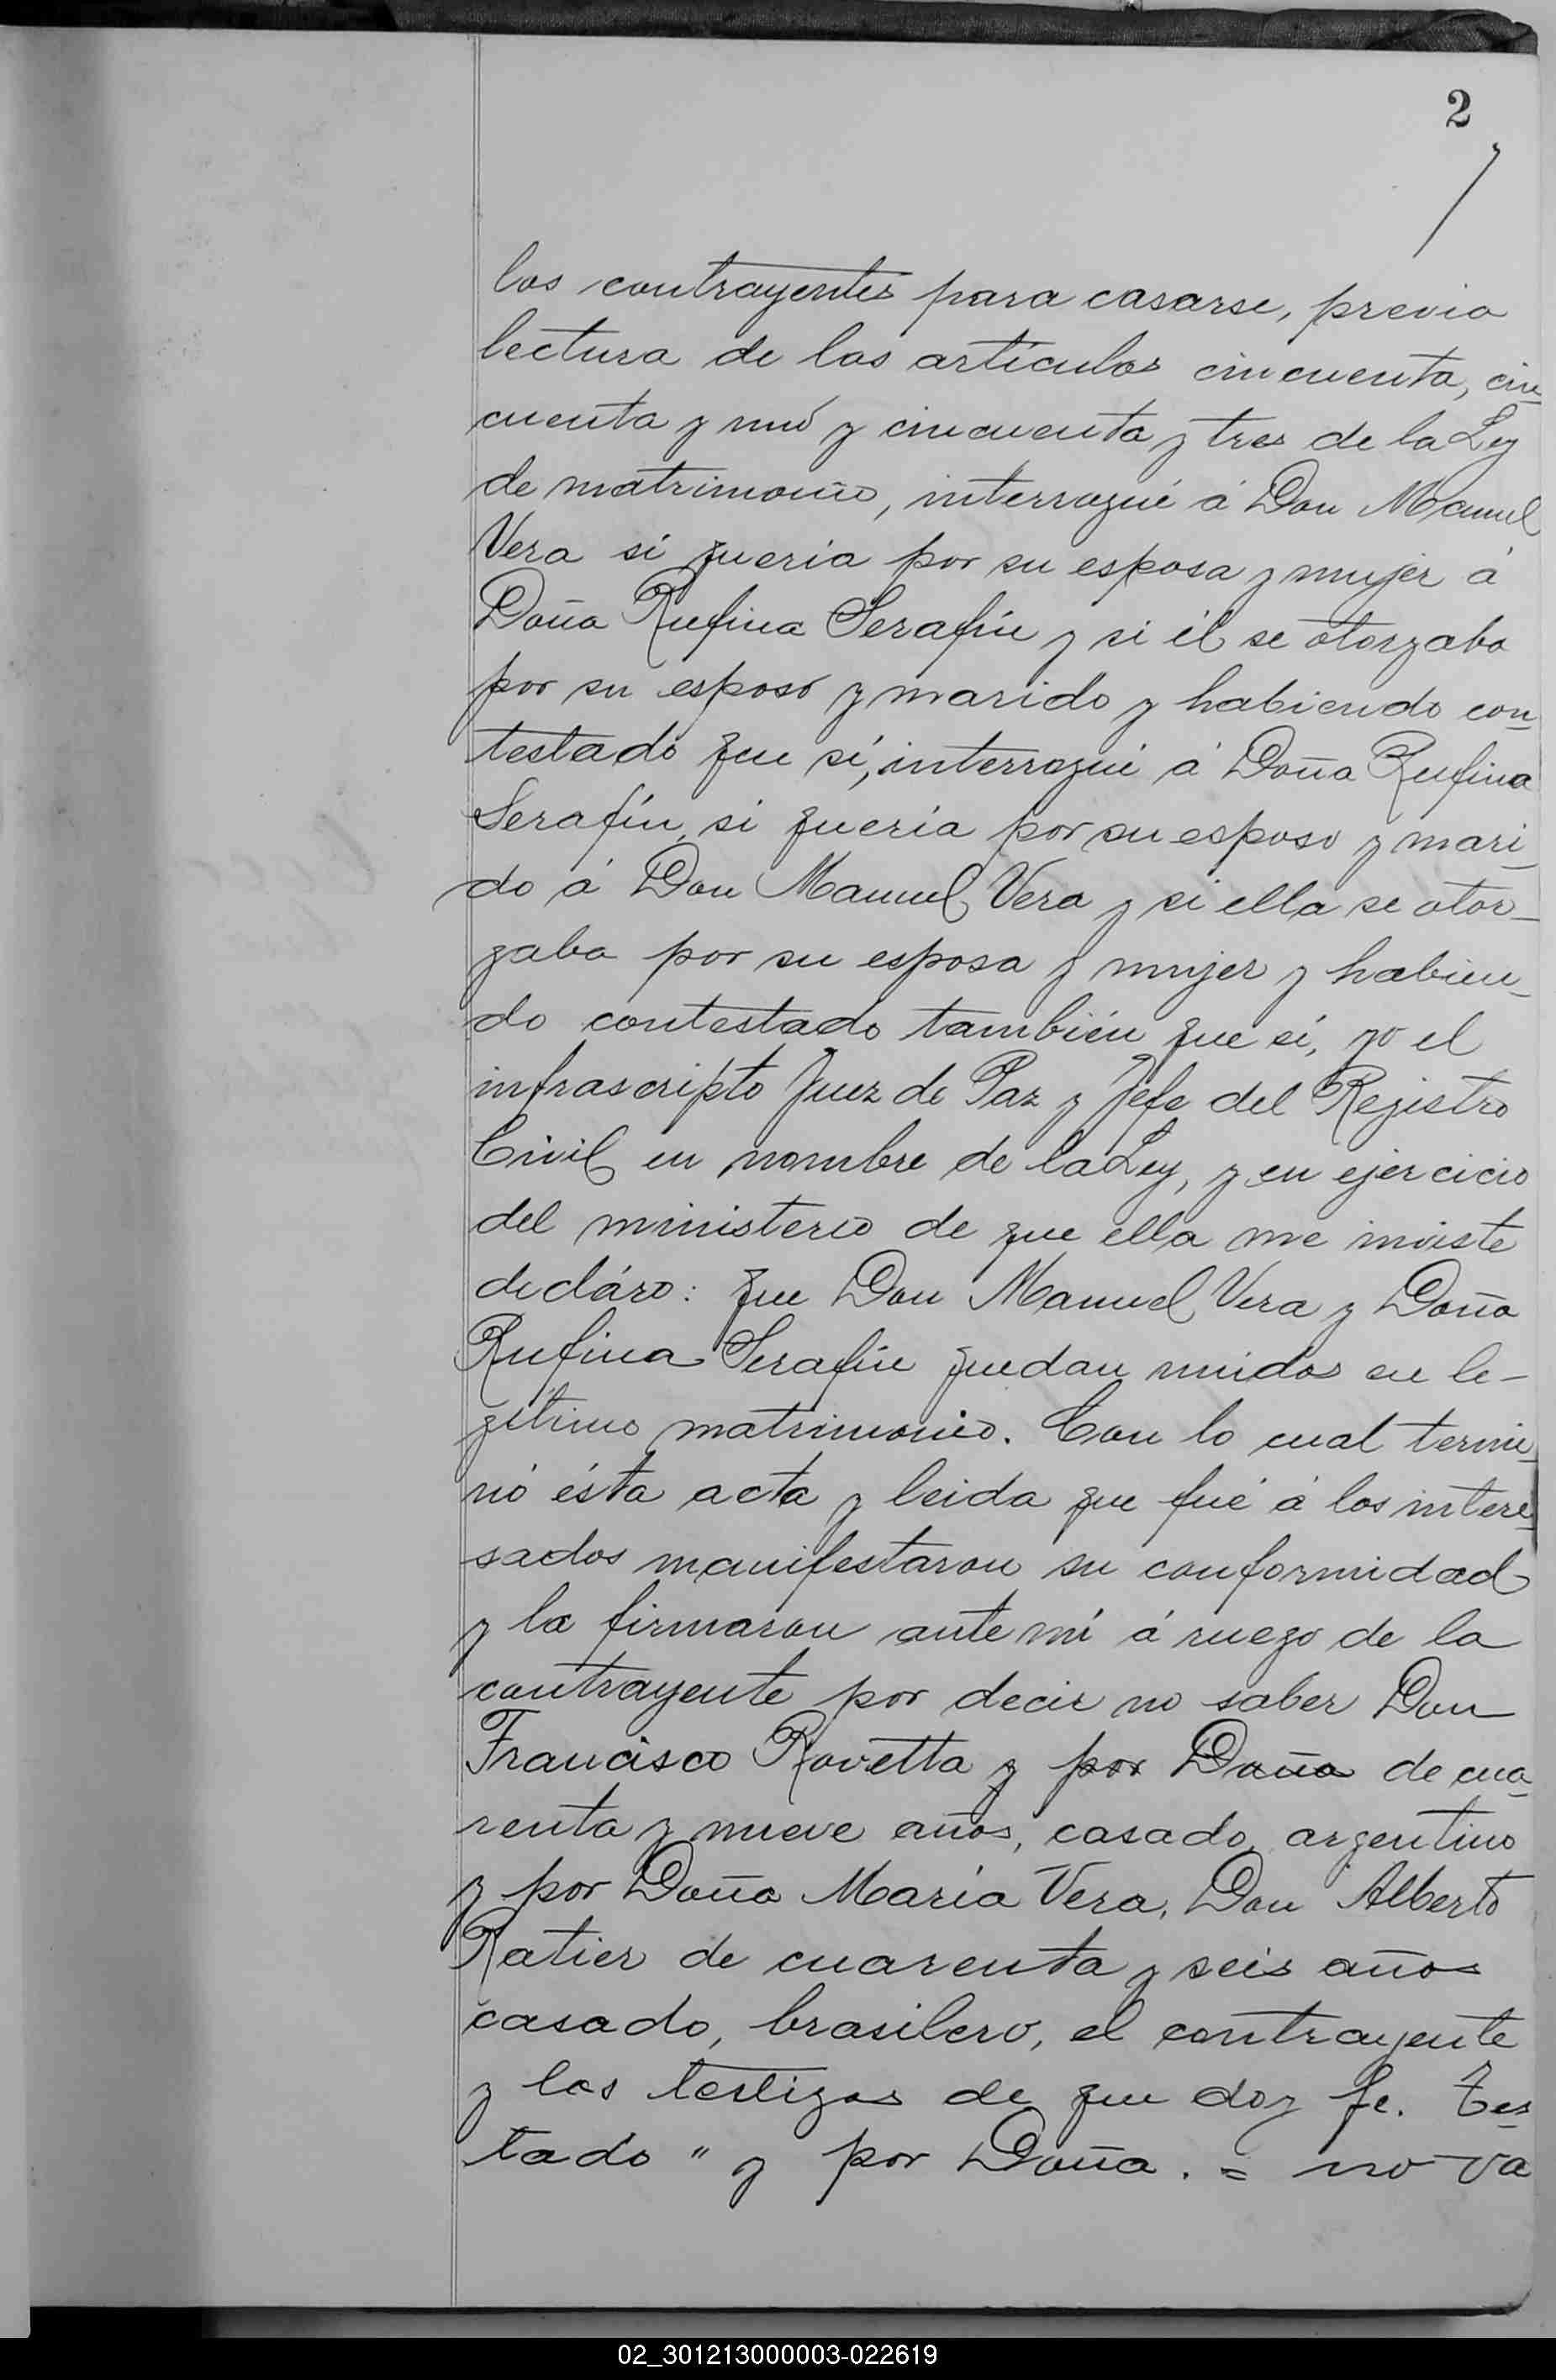 2
los contrayentes para casarse, previa
lectura de los artículos cincuenta, cin
cuenta y uno y cincuenta y tres de la Ley
de matrimonio, interrogué á Don Manuel
Vera si queria por su esposa y mujer á
Doña Rufina Serafín y si él se otorgaba
por su esposo y marido y habiendo con
testado que sí, interrogué á Doña Rufina
Serafín, si queria por su esposo y mari
do á Don Manuel Vera y si ella se otor-
gaba por su esposa y mujer y habien-
do contestado también que sí, yo el
infrascripto Juez de Paz y Jefe del Rejistro
Civil en nombre de la Ley, y en ejercicio
del ministerio de que ella me inviste
decláro: que Don Manuel Vera y Doña
Rufina Serafín quedan unidos en le-
gítimo matrimonio. Con lo cual termi
nó ésta acta y leida que fué á los intere
sados manifestaron su conformidad
y la firmaron ante mí á ruego de la
contrayente por decir no saber Don
Francisco Rovetta y por Doña de cua
renta y nueve años, casado, argentino
y por Doña María Vera, Don Alberto
Ratier de cuarenta y seis años
casado, brasilero, el contrayente
y los testigos de que doy fe. Tes
tado " y por Doña. = no va
02_301213000003-022619